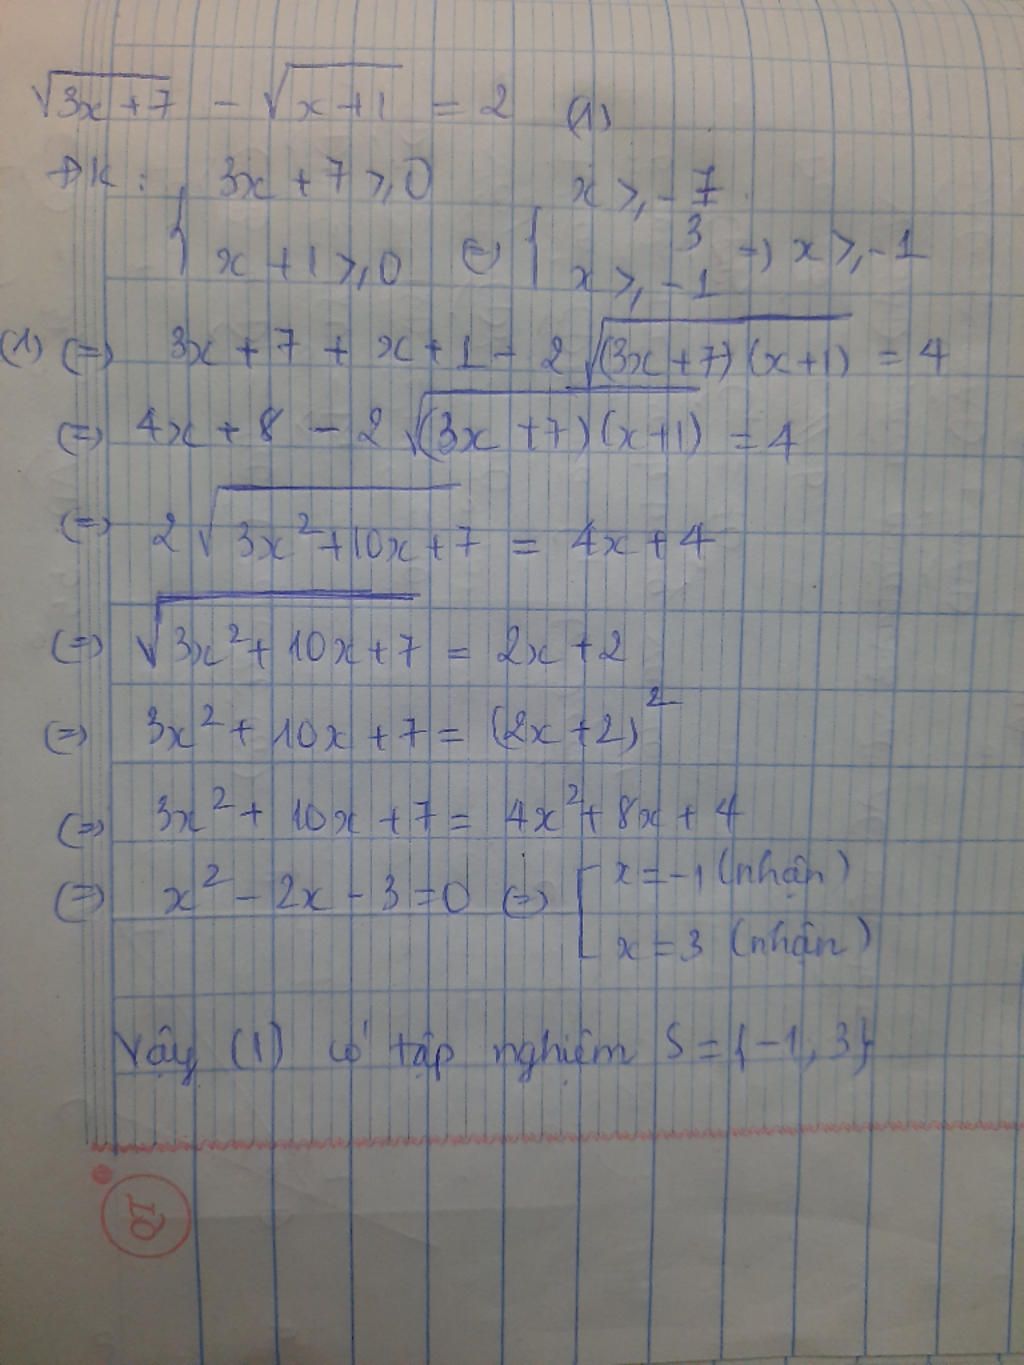 √(3x+7) - √(x+1) = 2 (1)
ĐK: { 3x + 7 ≥ 0
x + 1 ≥ 0 (=) { x ≥ -7/3
x ≥ -1 => x ≥ -1
(1) (=) 3x + 7 + x + 1 - 2√((3x+7)(x+1)) = 4
(=) 4x + 8 - 2√((3x+7)(x+1)) = 4
(=) 2√(3x²+10x+7) = 4x + 4
(=) √(3x²+10x+7) = 2x + 2
(=) 3x² + 10x + 7 = (2x+2)²
(=) 3x² + 10x + 7 = 4x² + 8x + 4
(=) x² - 2x - 3 = 0 (=) [ x = -1 (nhận)
x = 3 (nhận)
Vậy (1) có tập nghiệm S = {-1, 3}